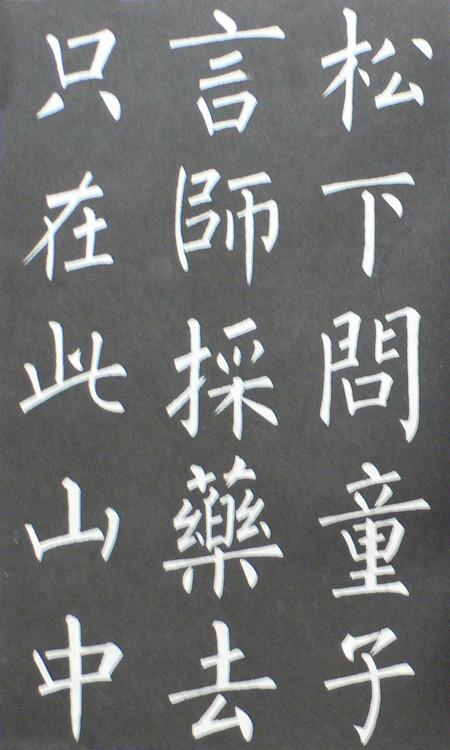 松下問童子
言師採藥去
只在此山中